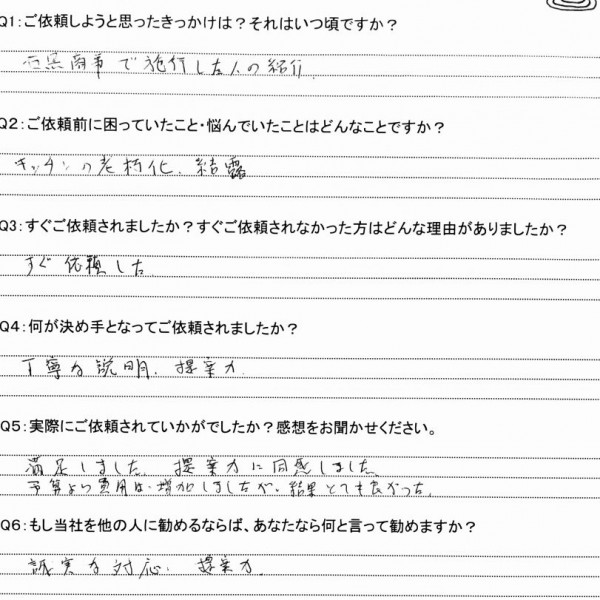 Q1:ご依頼しようと思ったきっかけは？それはいつ頃ですか？
石黒商事で施行した人の紹介
Q2:ご依頼前に困っていたこと・悩んでいたことはどんなことですか？
キッチンの老朽化、結露
Q3:すぐご依頼されましたか？すぐご依頼されなかった方はどんな理由がありましたか？
すぐ依頼した
Q4:何が決め手となってご依頼されましたか？
丁寧な説明、提案力
Q5:実際にご依頼されていかがでしたか？感想をお聞かせください。
満足しました。提案力に同感しました
予算より費用は、増加しましたが、結果とても良かった。
Q6:もし当社を他の人に勧めるならば、あなたなら何と言って勧めますか？
誠実な対応、提案力